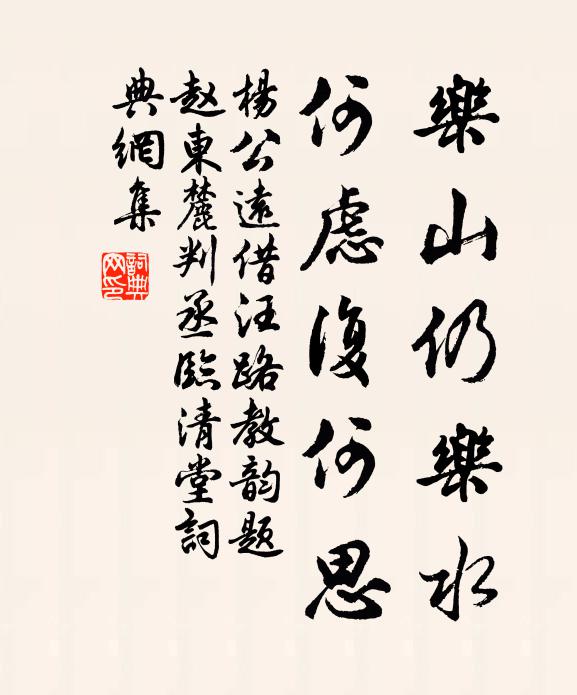 樂山仍樂水
何慮復何思
楊公遠借汪路教韵題
赵東麓判丞臨清堂詞
典網集
詞典
网印